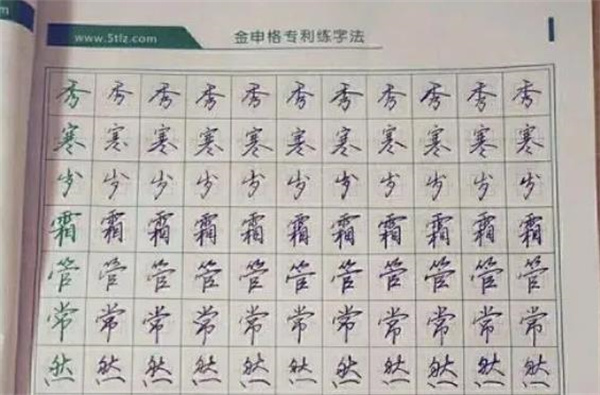 www.5tlz.com 金申格专利练字法
秀 秀 秀 秀 秀 秀 秀 秀 秀 秀 秀
寒 寒 寒 寒 寒 寒 寒 寒 寒 寒 寒
岁 岁 岁 岁 岁 岁 岁 岁 岁 岁 岁
霜 霜 霜 霜 霜 霜 霜 霜 霜 霜 霜
管 管 管 管 管 管 管 管 管 管 管
常 常 常 常 常 常 常 常 常 常 常
然 然 然 然 然 然 然 然 然 然 然